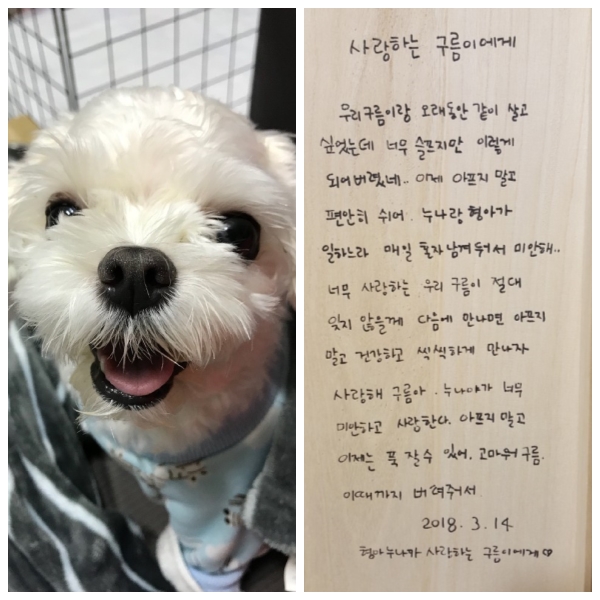 사랑하는 구름이에게
우리구름이랑 오래동안 같이 살고
싶었는데 너무 슬프지만 이렇게
되어버렸네.. 이제 아프지 말고
편안히 쉬어. 누나랑 형아가
일하느라 매일 혼자남겨둬서 미안해..
너무 사랑하는 우리 구름이 절대
잊지 않을께 다음에 만나면 아프지
말고 건강하고 씩씩하게 만나자
사랑해 구름아. 누나야가 너무
미안하고 사랑한다. 아프지말고
이제는 푹 잘수 있어. 고마워구름.
이때까지 버텨줘서
2018. 3. 14
형아누나가 사랑하는 구름이에게♡